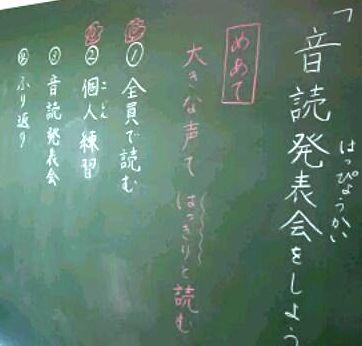 「音読発表会をしよう
はっぴょうかい
めあて
大きな声で はっきりと読む
① 全員で読む
② 個人練習
こじん
③ 音読発表会
④ ふり返り